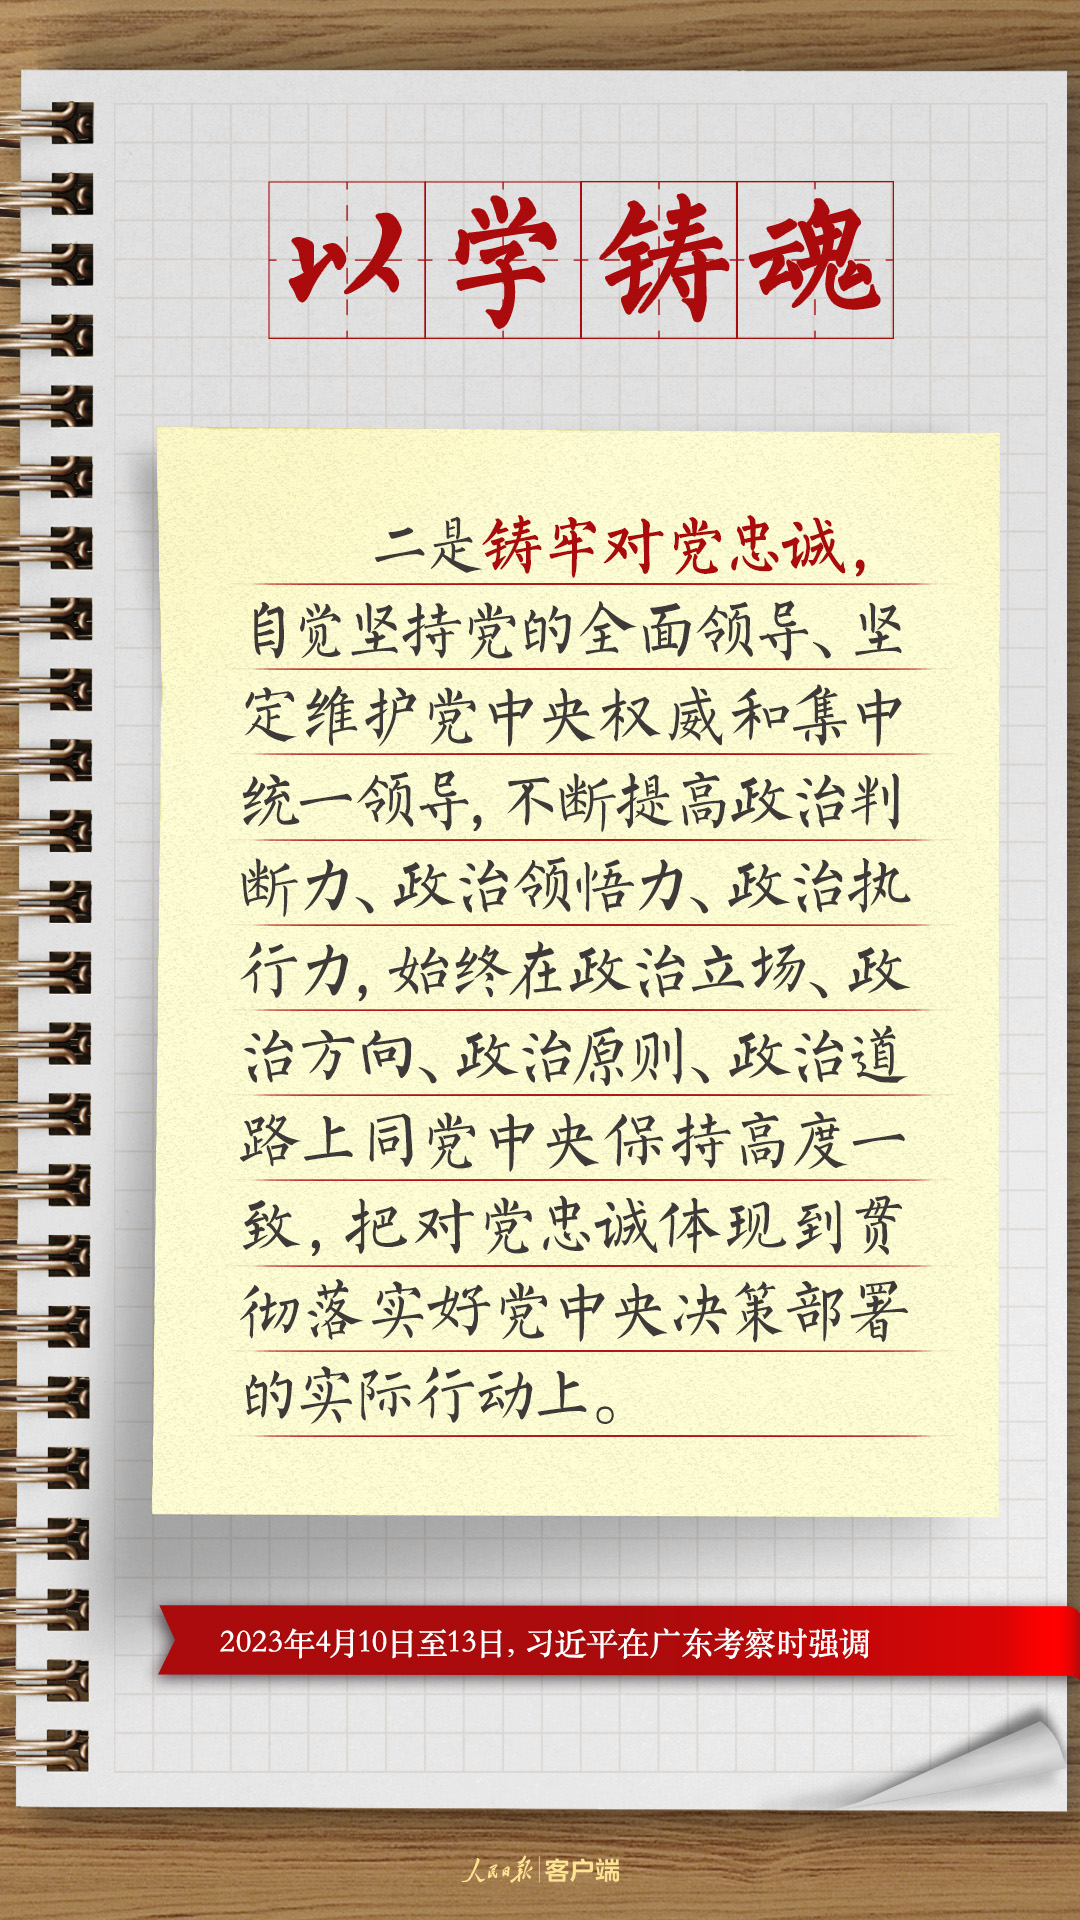 以学铸魂
二是铸牢对党忠诚，
自觉坚持党的全面领导、坚
定维护党中央权威和集中
统一领导，不断提高政治判
断力、政治领悟力、政治执
行力，始终在政治立场、政
治方向、政治原则、政治道
路上同党中央保持高度一
致，把对党忠诚体现到贯
彻落实好党中央决策部署
的实际行动上。
2023年4月10日至13日，习近平在广东考察时强调
人民日报|客户端